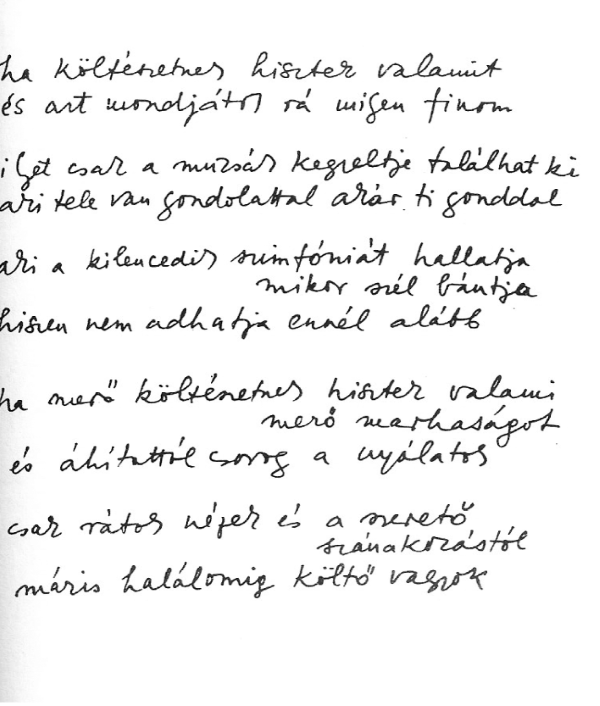 ha költészetnek hisztek valamit
és azt mondjátok rá milyen finom
ilyet csak a múzsák kegyeltje találhat ki
aki tele van gondolattal akár ti gonddal
aki a kilencedik szimfóniát hallatja
mikor szél bántja
hiszen nem adhatja ennél alább
ha merő költészetnek hisztek valami
merő marhaságot
és áhítattól csorog a nyálatok
csak rátok nézek és a szerető
szánakozástól
máris halálomig költő vagyok